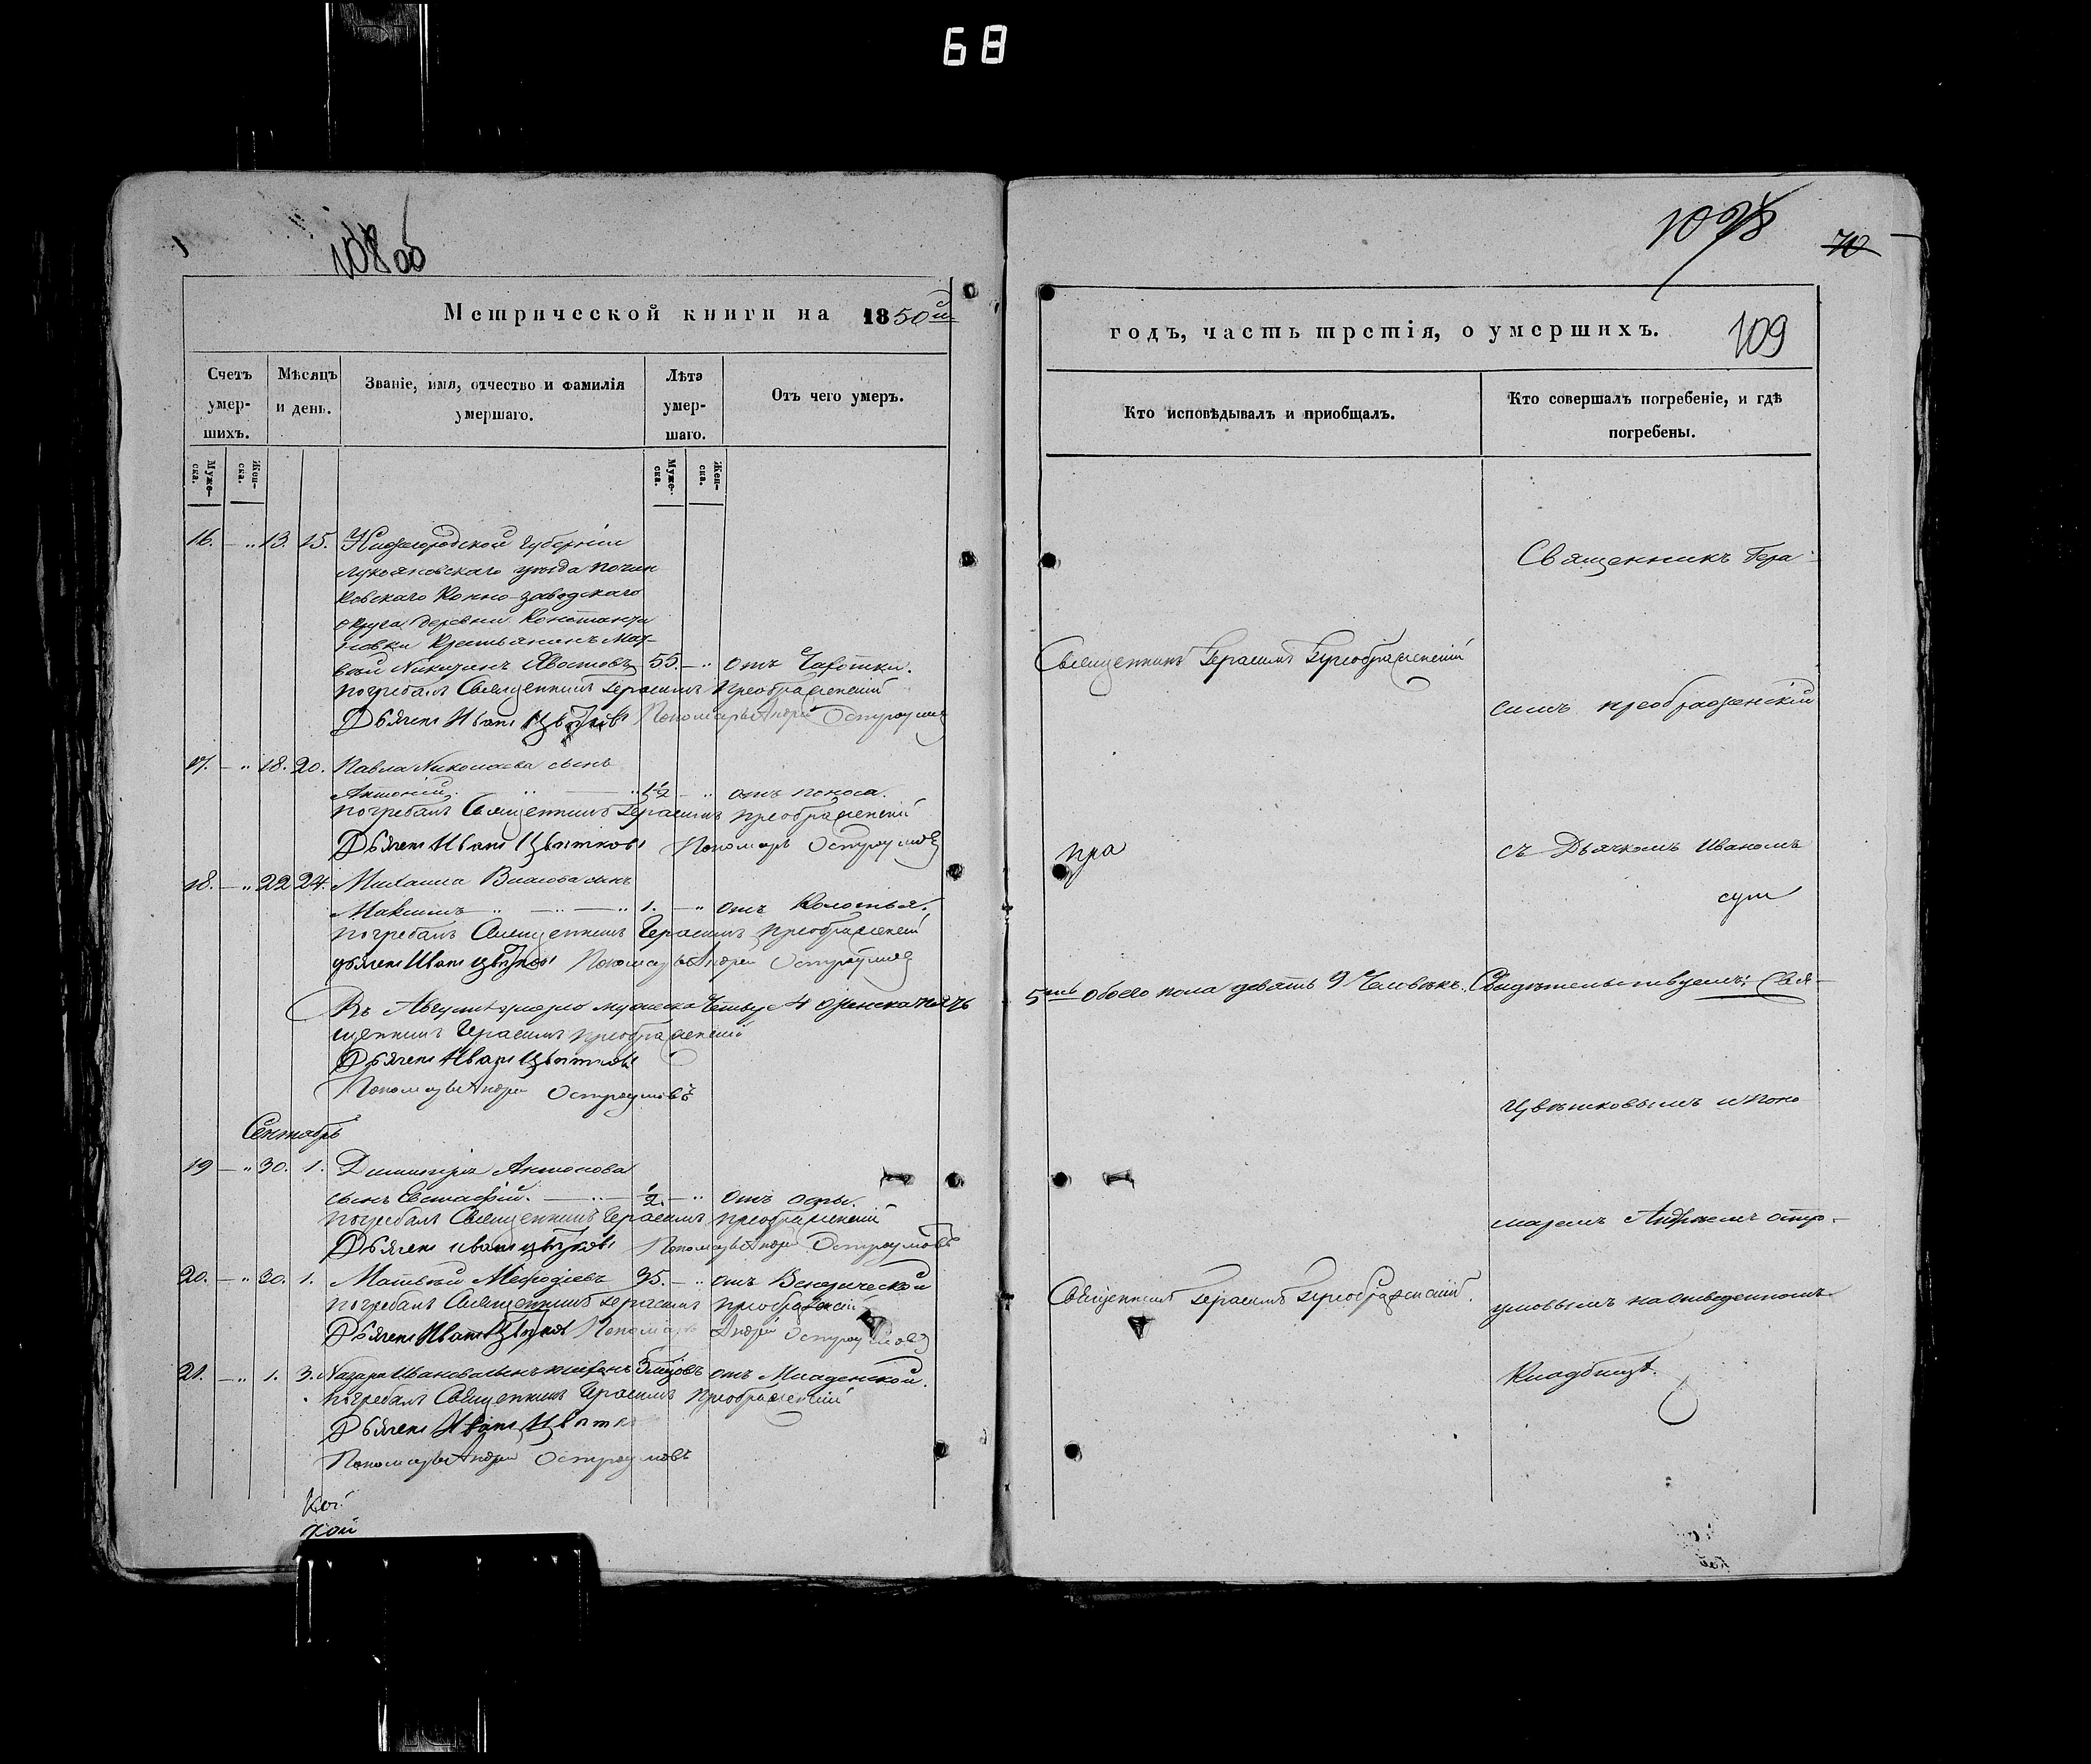 68
108 об
Метрической книги на 1850й
Счетъ умер-шихъ.
Мѣсяцъ и день.
Званіе, имя, отчество и фамилія умершаго.
Лѣта умер-шаго.
Отъ чего умеръ.
Муже-ска.
Жен-ска.
Муже-ска.
Жен-ска.
16. — „ 13. 15. Нижегородской Губерніи
Лукояновскаго уѣзда Почин
ковскаго Конно-заводскаго
округа деревни Константи
новки Крестьянинъ Мат-
вѣй Никитинъ 55. — „ отъ Чахотки.
погребалъ Священникъ Герасимъ Преображенскій
Дьячекъ Иванъ Цвѣтковъ Пономарь Андрей Остроумовъ
17. — „ 18. 20. Павла Николаева сынъ
Антоній. „ — „ 1/2 — „ отъ поноса.
погребалъ Священникъ Герасимъ Преображенскій
Дьячекъ Иванъ Цвѣтковъ Пономарь Остроумовъ
18. — „ 22 24. Михаила Власова сынъ
Максимъ — „ — „ — „ 1. — „ отъ Колотья.
погребалъ Священникъ Герасимъ Преображенскій
Дьячекъ Иванъ Цвѣтковъ Пономарь Андрей Остроумовъ
Въ Августѣ умерло мужеска четыре 4 женска пять
щенникъ Герасимъ Преображенскій
Дьячекъ Иванъ Цвѣтковъ
Пономарь Андрей Остроумовъ
Сентябрь
19 — „ 30. 1. Димитрія Антонова
сынъ Евстафій. — „ — 1/2. — „ отъ оспы.
погребалъ Священникъ Герасимъ Преображенскій
Дьячекъ Иванъ Цвѣтковъ Пономарь Андрей Остроумовъ
20. — „ 30. 1. Матвѣй Меѳодіевъ 35. — „ отъ Венерической
погребалъ Священникъ Герасимъ Преображенскій
Дьячекъ Иванъ Цвѣтковъ Пономарь Андрей Остроумовъ
21. — „ 1. 3. Назара Иванова сынъ отъ Младенской.
погребалъ Священникъ Герасимъ Преображенскій
Дьячекъ Иванъ Цвѣтк
Пономарь Андрей Остроумовъ
70
годъ, часть третія, о умершихъ.
109
Кто исповѣдывалъ и приобщалъ.
Кто совершалъ погребеніе, и гдѣ погребены.
Священникъ Гера-
Священникъ Герасимъ Преображенскій
симъ Преображенскій
съ Дьячкомъ Иваномъ
5ть обоего пола девять 9 Человѣкъ. Свидѣтельствуемъ: Свя-
Цвѣтковымъ и Поно
маремъ Андреемъ Остро-
Священникъ Герасимъ Преображенскій.
умовымъ на отведенномъ
Кладбищѣ.